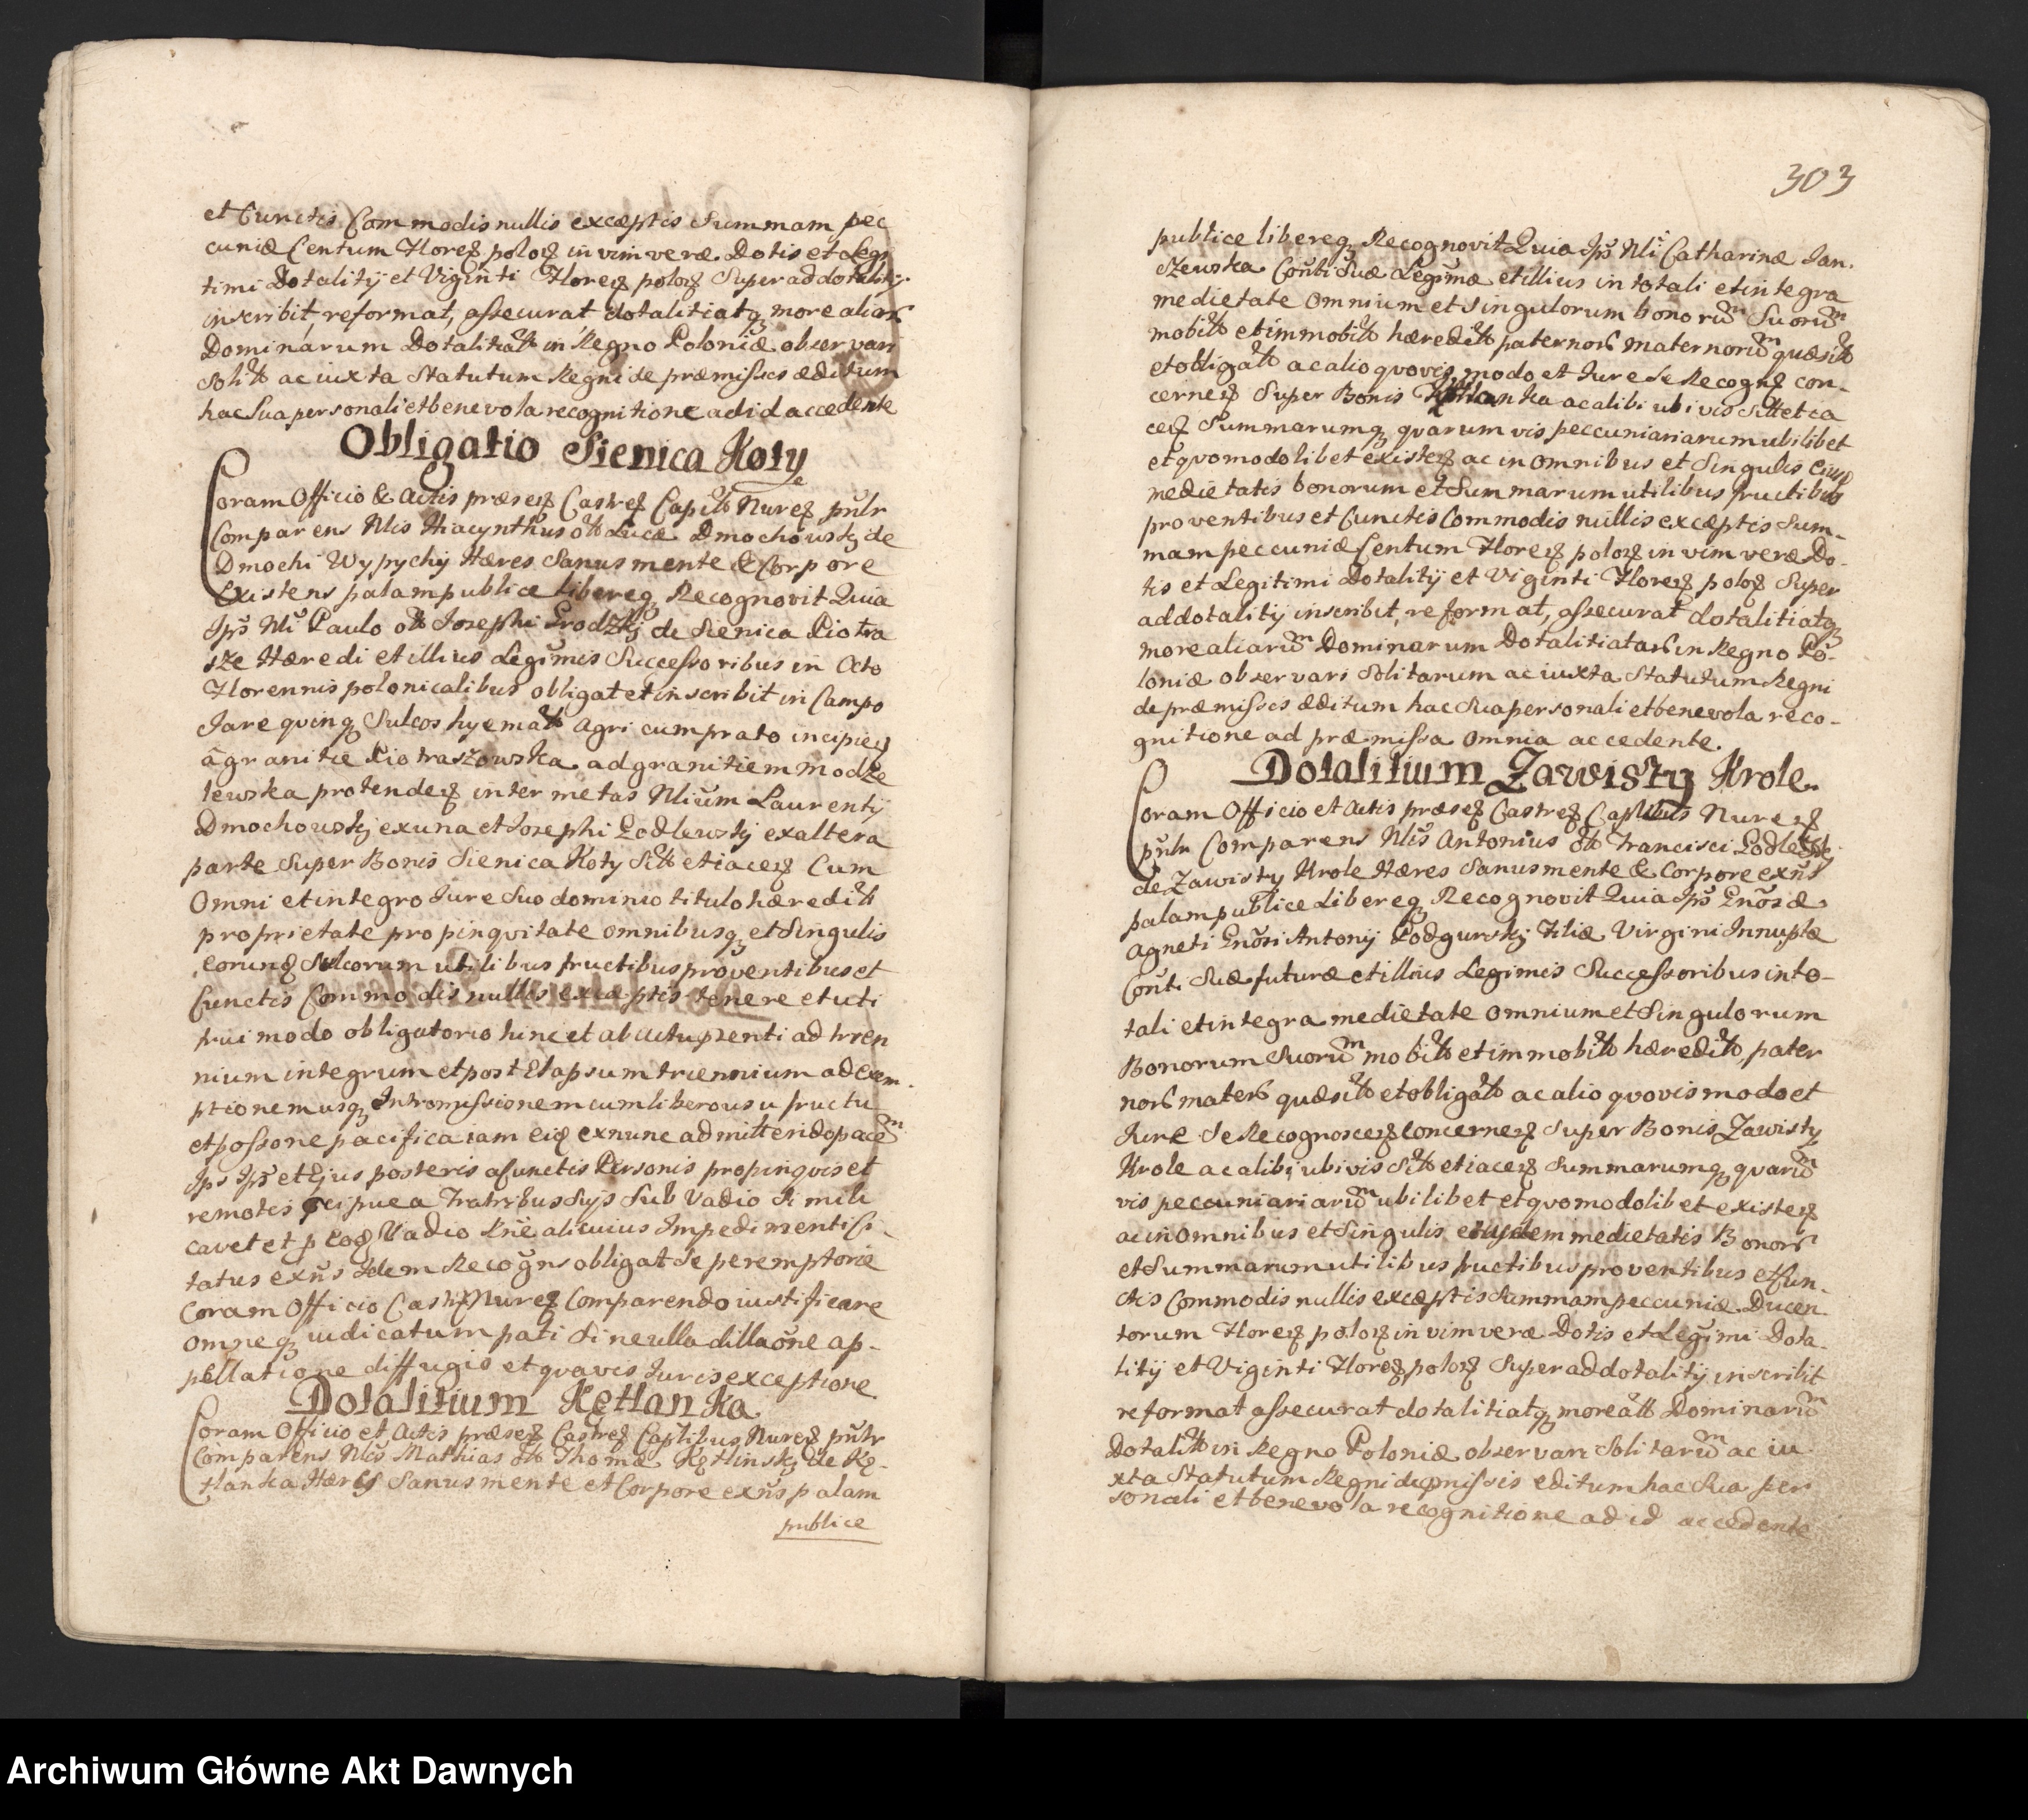 et Cunctis Commodis nullis exceptis Summam pec
cuniæ Centum Floreȝ poloȝ in vim veræ Dotis et Legi
timi Dotalitÿ et Viginti Floreȝ poloȝ Superaddotalitÿ
inscribit, reformat, assecurat dotalitiatqȝ more aliar
Dominarum Dotalitiat in Regno Poloniæ observari
Solit ac iuxta Statutum Regni de præmissis æditum
hac Sua personali et benevola recognitione ad id accedente
Obligatio Sienica Koty
Coram Officio & Actis præseȝ Castreȝ Capit Nureȝ pulr
Comparens Nlis Hiacynthus olt Lucæ Dmochowskj de
Dmochi Wypychÿ Hæres Sanus mente & Corpore
Existens palam publice libereqȝ Recognovit Quia
Ips Nli Paulo olt Josephi Grodzkj de Sienica Piotra
sze Hæredi et illius Legimis Successoribus in Octo
Florennis polonicalibus obligat et inscribit in Campo
Jare qvinqȝ Sulcos hyemat agri cum prato incipieȝ
a granitie Piotraszowska ad granitiem modze
lewska protendeȝ inter metas Nlium Laurentÿ
Dmochowskj ex una et Josephi Godlewskj ex altera
parte Super Bonis Sienica Koty Sit et iaceȝ Cum
Omni et integro Jure Suo dominio titulo hæredit
proprietate propinqvitate omnibusqȝ et Singulis
eorunȝ Sulcorum utilibus fructibus proventibus et
Cunctis Commodis nullis exceptis tenere et uti
frui modo obligatorio hinc et ab actu pzenti ad trien
nium integrum et post Elapsum triennium ad exem-
ptionem usqȝ Intromissionem cum libero usu fructu
et possone pacifica iam eiȝ ex nunc admittendo pacem
Ips Ips et Ejus posteris a cunctis Personis propinqvis et
remotis pcipue a Fratribus Suÿs Sub Vadio Simili
cavet et p eoȝ Vadio rne alicuius Impedimenti Ci-
tatus exns Idem Recogns obligat Se peremptorie
Coram Officio Castr Nureȝ Comparendo iustificare
omneqȝ iudicatum pati Sine ulla dillaone ap-
pellatione diffugio et qvavis Juris exceptione
Dotalitium Kętlanka
Coram Officio et Actis præseȝ Castreȝ Captlibus Nureȝ pulr
Comparens Nlis Mathias olt Thomæ Kętlinskj de Kę-
tlanka Hæres Sanus mente et Corpore exns palam
publice
303
publice libereqȝ Recognovit Quia Ips Nli Catharinæ Jan-
czewska Conti Suæ Legimæ et illius in totali et integra
medietate Omnium et Singulorum bonorum Suorum
mobit et immobit hæredit paternor maternorum quæsit
et obligat ac alio qvovis modo et Jure Se Recognȝ con-
cerneȝ Super Bonis Kętlanka ac alibi ubivis Sitt et ia
ceȝ Summarumqȝ qvarumvis peccuniariarum ubilibet
et qvomodolibet existeȝ ac in Omnibus et Singulis eiusd
medietatis bonorum et Summarum utilibus fructibus
proventibus et Cunctis Commodis nullis exceptis Sum-
mam peccuniæ Centum Floreȝ poloȝ in vim veræ Do-
tis et Legitimi Dotalitÿ et Viginti Floreȝ poloȝ Super
addotalitÿ inscribit, reformat, assecurat dotalitiatqȝ
more aliarum Dominarum Dotalitiatar in Regno Po-
loniæ observari Solitarum ac iuxta Statutum Regni
de præmissis æditum hac Sua personali et benevola reco-
gnitione ad præmissa Omnia accedente.
Dotalitium Zawisty Krole.
Coram Officio et Actis præseȝ Castreȝ Captlibus Nureȝ
pulr Comparens Nlis Antonius olt Francisci Godlewskj
de Zawisty Krole Hæres Sanus mente & Corpore exns
palam publice Libereqȝ Recognovit Quia Ips Gnosæ
Agneti Gnosi Antonÿ Podgurskj Filiæ Virgini Innuptæ
Conti Suæ futuræ et illius Legimis Successoribus in to-
tali et integra medietate Omnium et Singulorum
Bonorum Suorum mobit et immobit hæredit pater
nor mater quæsit et obligat ac alio qvovis modo et
Jure Se Recognosceȝ concerneȝ Super Bonis Zawisty
Krole ac alibi ubivis Sit et iaceȝ Summarumqȝ qvarum
vis peccuniariarum ubilibet et qvomodolibet existeȝ
ac in Omnibus et Singulis eiusdem medietatis Bonor
et Summarum utilibus fructibus proventibus et Cun-
ctis Commodis nullis exceptis Summam peccuniæ Ducen
torum Floreȝ poloȝ in vim veræ Dotis et Legimi Dota-
litÿ et Viginti Floreȝ poloȝ Superaddotalitÿ inscribit
reformat assecurat dotalitiatqȝ more alt Dominarum
Dotalit in Regno Poloniæ observari Solitarum ac iu
xta Statutum Regni de pmissis editum hac Sua per
sonali et benevola recognitione ad id accedente
Archiwum Główne Akt Dawnych